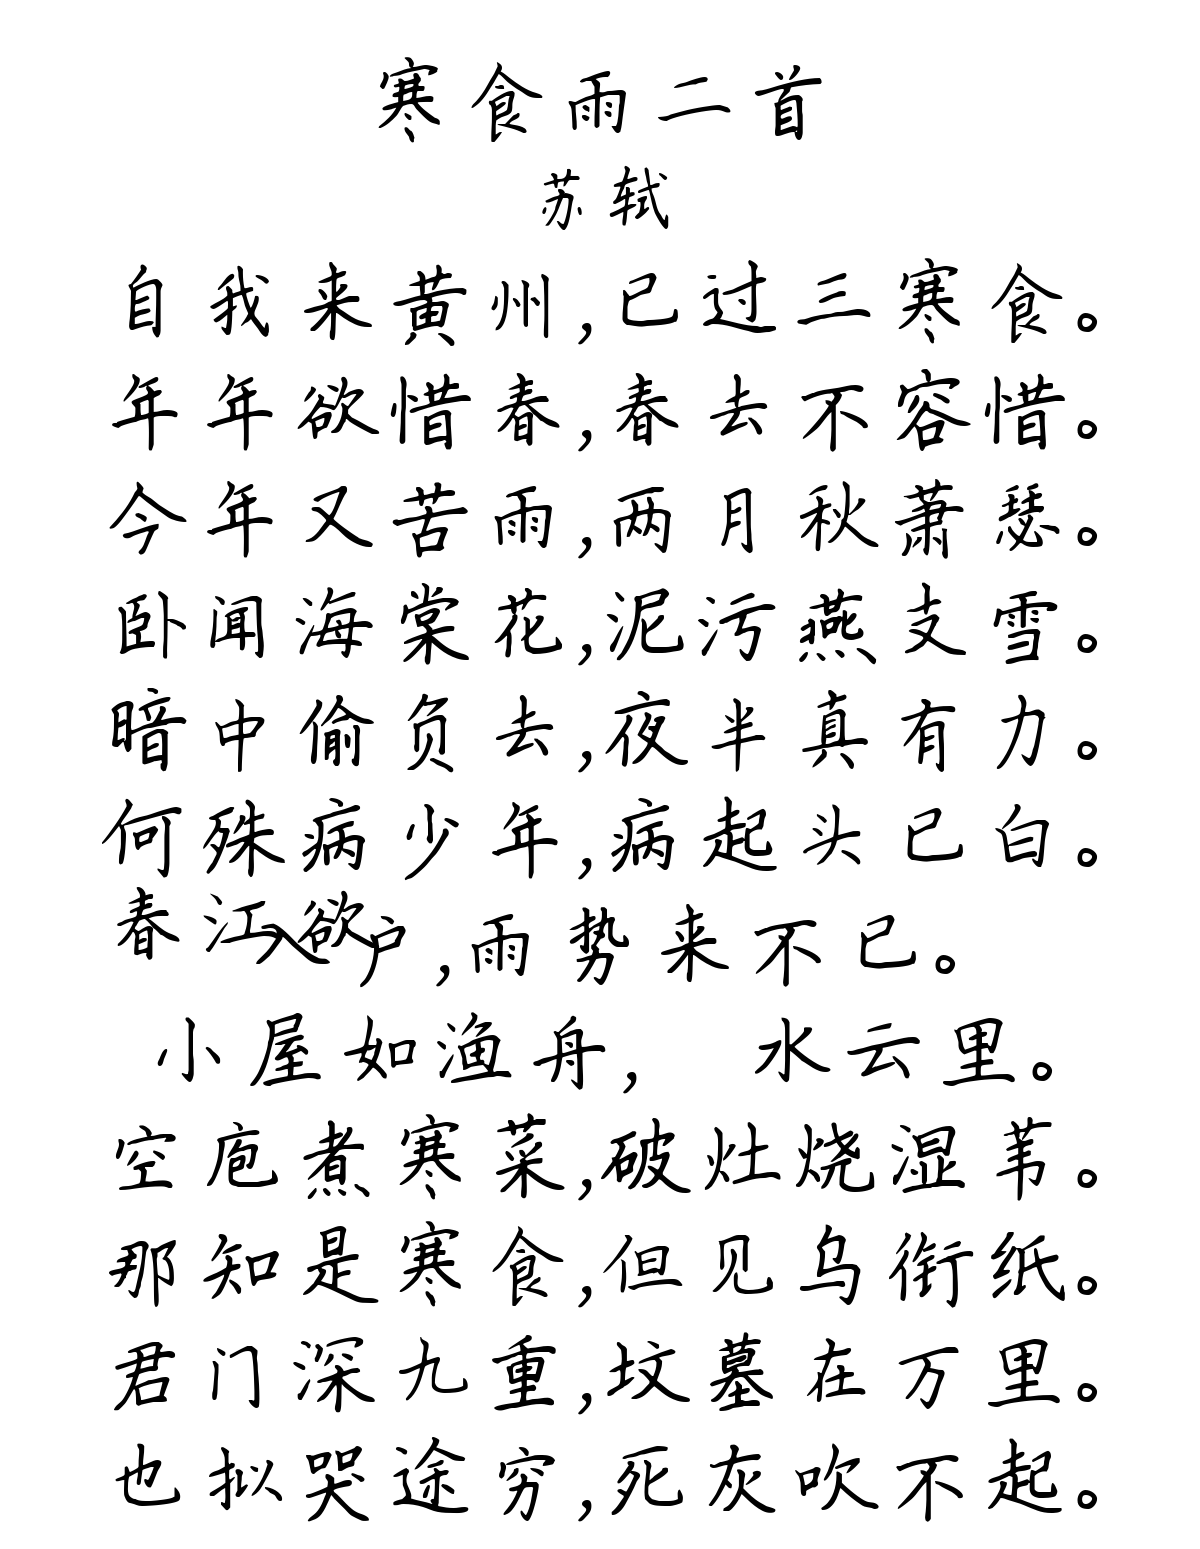 寒食雨二首
苏轼
自我来黄州,已过三寒食。
年年欲惜春,春去不容惜。
今年又苦雨,两月秋萧瑟。
卧闻海棠花,泥污燕支雪。
暗中偷负去,夜半真有力。
何殊病少年,病起头已白。
春江欲入户,雨势来不已。
小屋如渔舟, 水云里。
空庖煮寒菜,破灶烧湿苇。
那知是寒食,但见乌衔纸。
君门深九重,坟墓在万里。
也拟哭途穷,死灰吹不起。